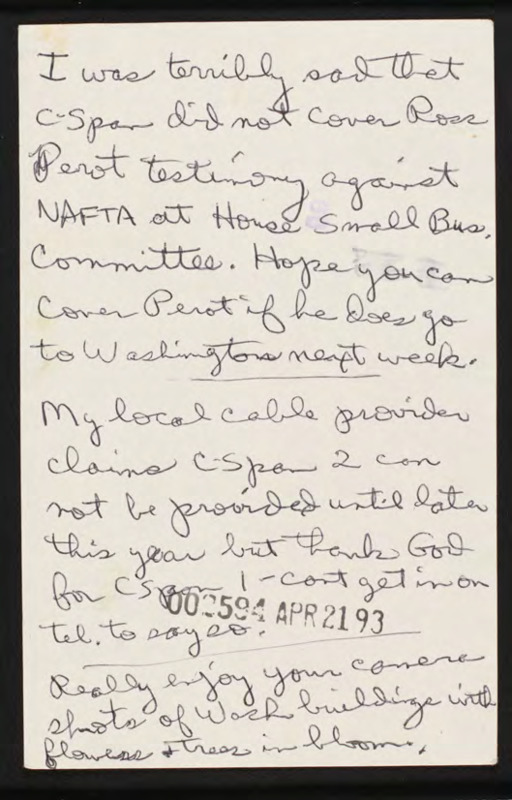 I was terribly sad that
C-Span did not cover Ross
Perot testimony against
NAFTA at House Small Bus.
Committee. Hope you can
cover Perot if he does go
to Washington next week.
My local cable provider
claims C-Span 2 can
not be provided until later
this year but thank God
for CSpan 1-cant get in on
002594 APR 21 93
tel. to say so.
Really enjoy your camera
shots of Wash buildings with
flowers + trees in bloom.